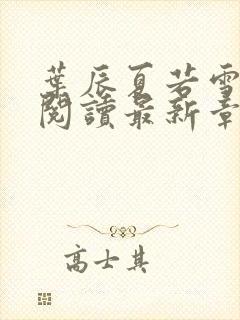 葉辰夏若雪
閱讀最新章
高士其